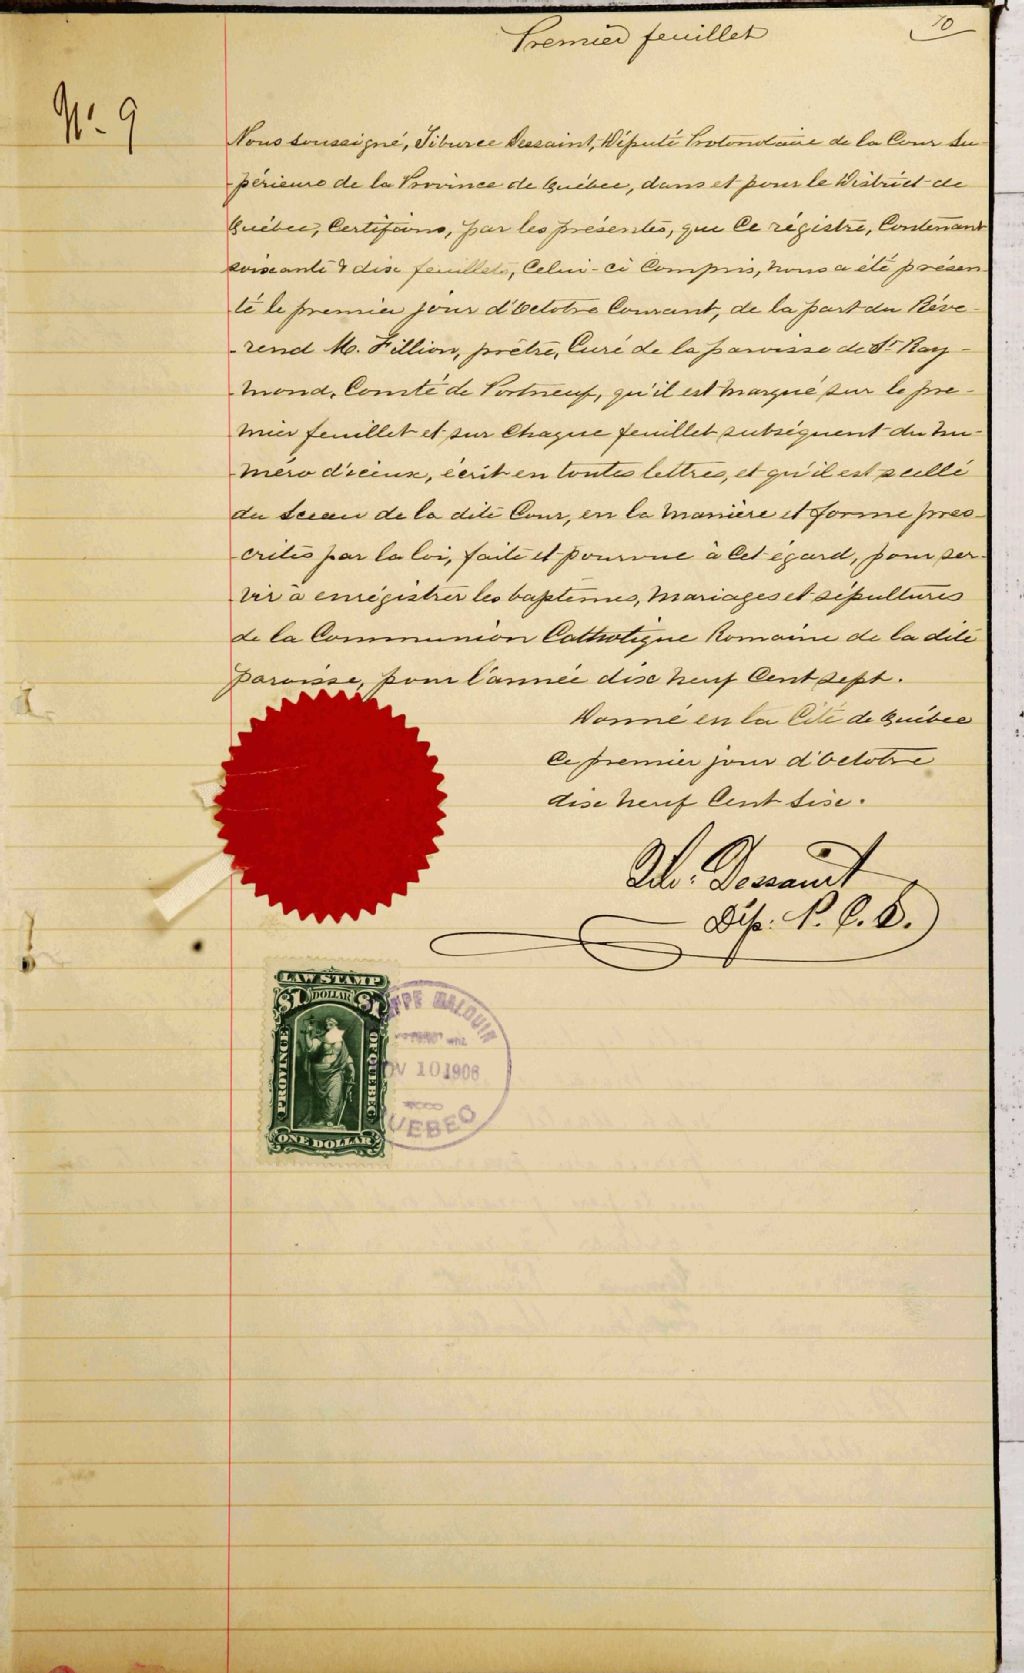 Premier feuillet
70
No. 9
Nous soussigné, Tiburce Dessaint, Député Protonotaire de la Cour Su-
-périeure de la Province de Québec, dans et pour le District de
Québec, Certifions, par les présentes, que Ce régistre, Contenant
soixante & dix feuillets, Celui-ci Compris, nous a été présen-
té le premier jour d'Octobre Courant, de la part du Révé-
-rend M. Fillion, prêtre, Curé de la paroisse de St Ray-
-mond, Comté de Portneuf, qu'il est marqué sur le pre-
-mier feuillet et sur Chaque feuillet subséquent du nu-
-méro d'iceux, écrit en toutes lettres, et qu'il est scellé
du Sceau de la dite Cour, en la manière et forme pres-
crites par la loi, faite et pourvue à Cet égard, pour ser-
vir à enrégistrer les baptêmes, Mariages et sépultures
de la Communion Catholique Romaine de la dite
paroisse, pour l'année dix neuf Cent sept.
Donné en la Cité de Québec
Ce premier jour d'Octobre
dix neuf Cent Six.
Tib: Dessaint
Dép: P. C. S.
LAW STAMP
$1 DOLLAR $1
PROVINCE OF QUEBEC
ONE DOLLAR
MALOUIN
NOV 10 1906
QUEBEC